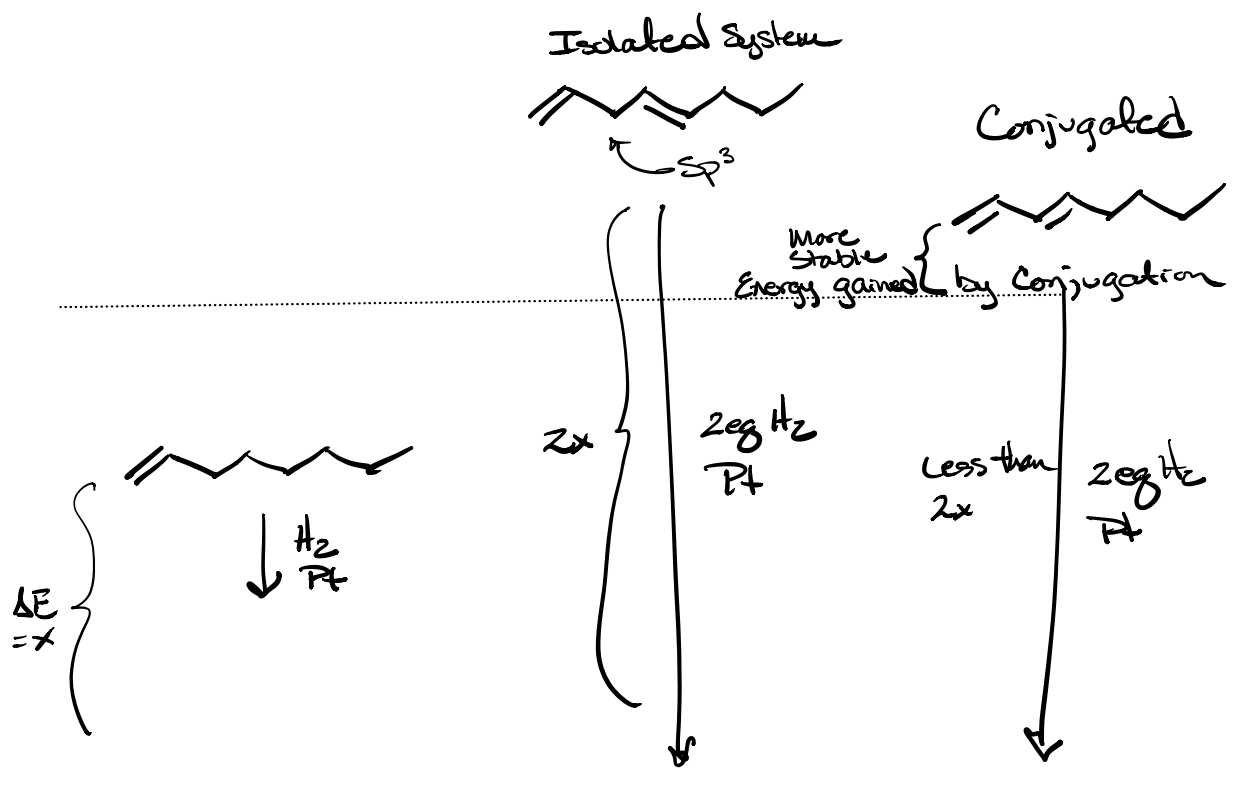 Isolated System
Conjugated
Sp³
More
Stable
Energy gained by Conjugation
2x
2eq H₂
Pt
Less than
2x
2eq H₂
Pt
H₂
Pt
ΔE
=x